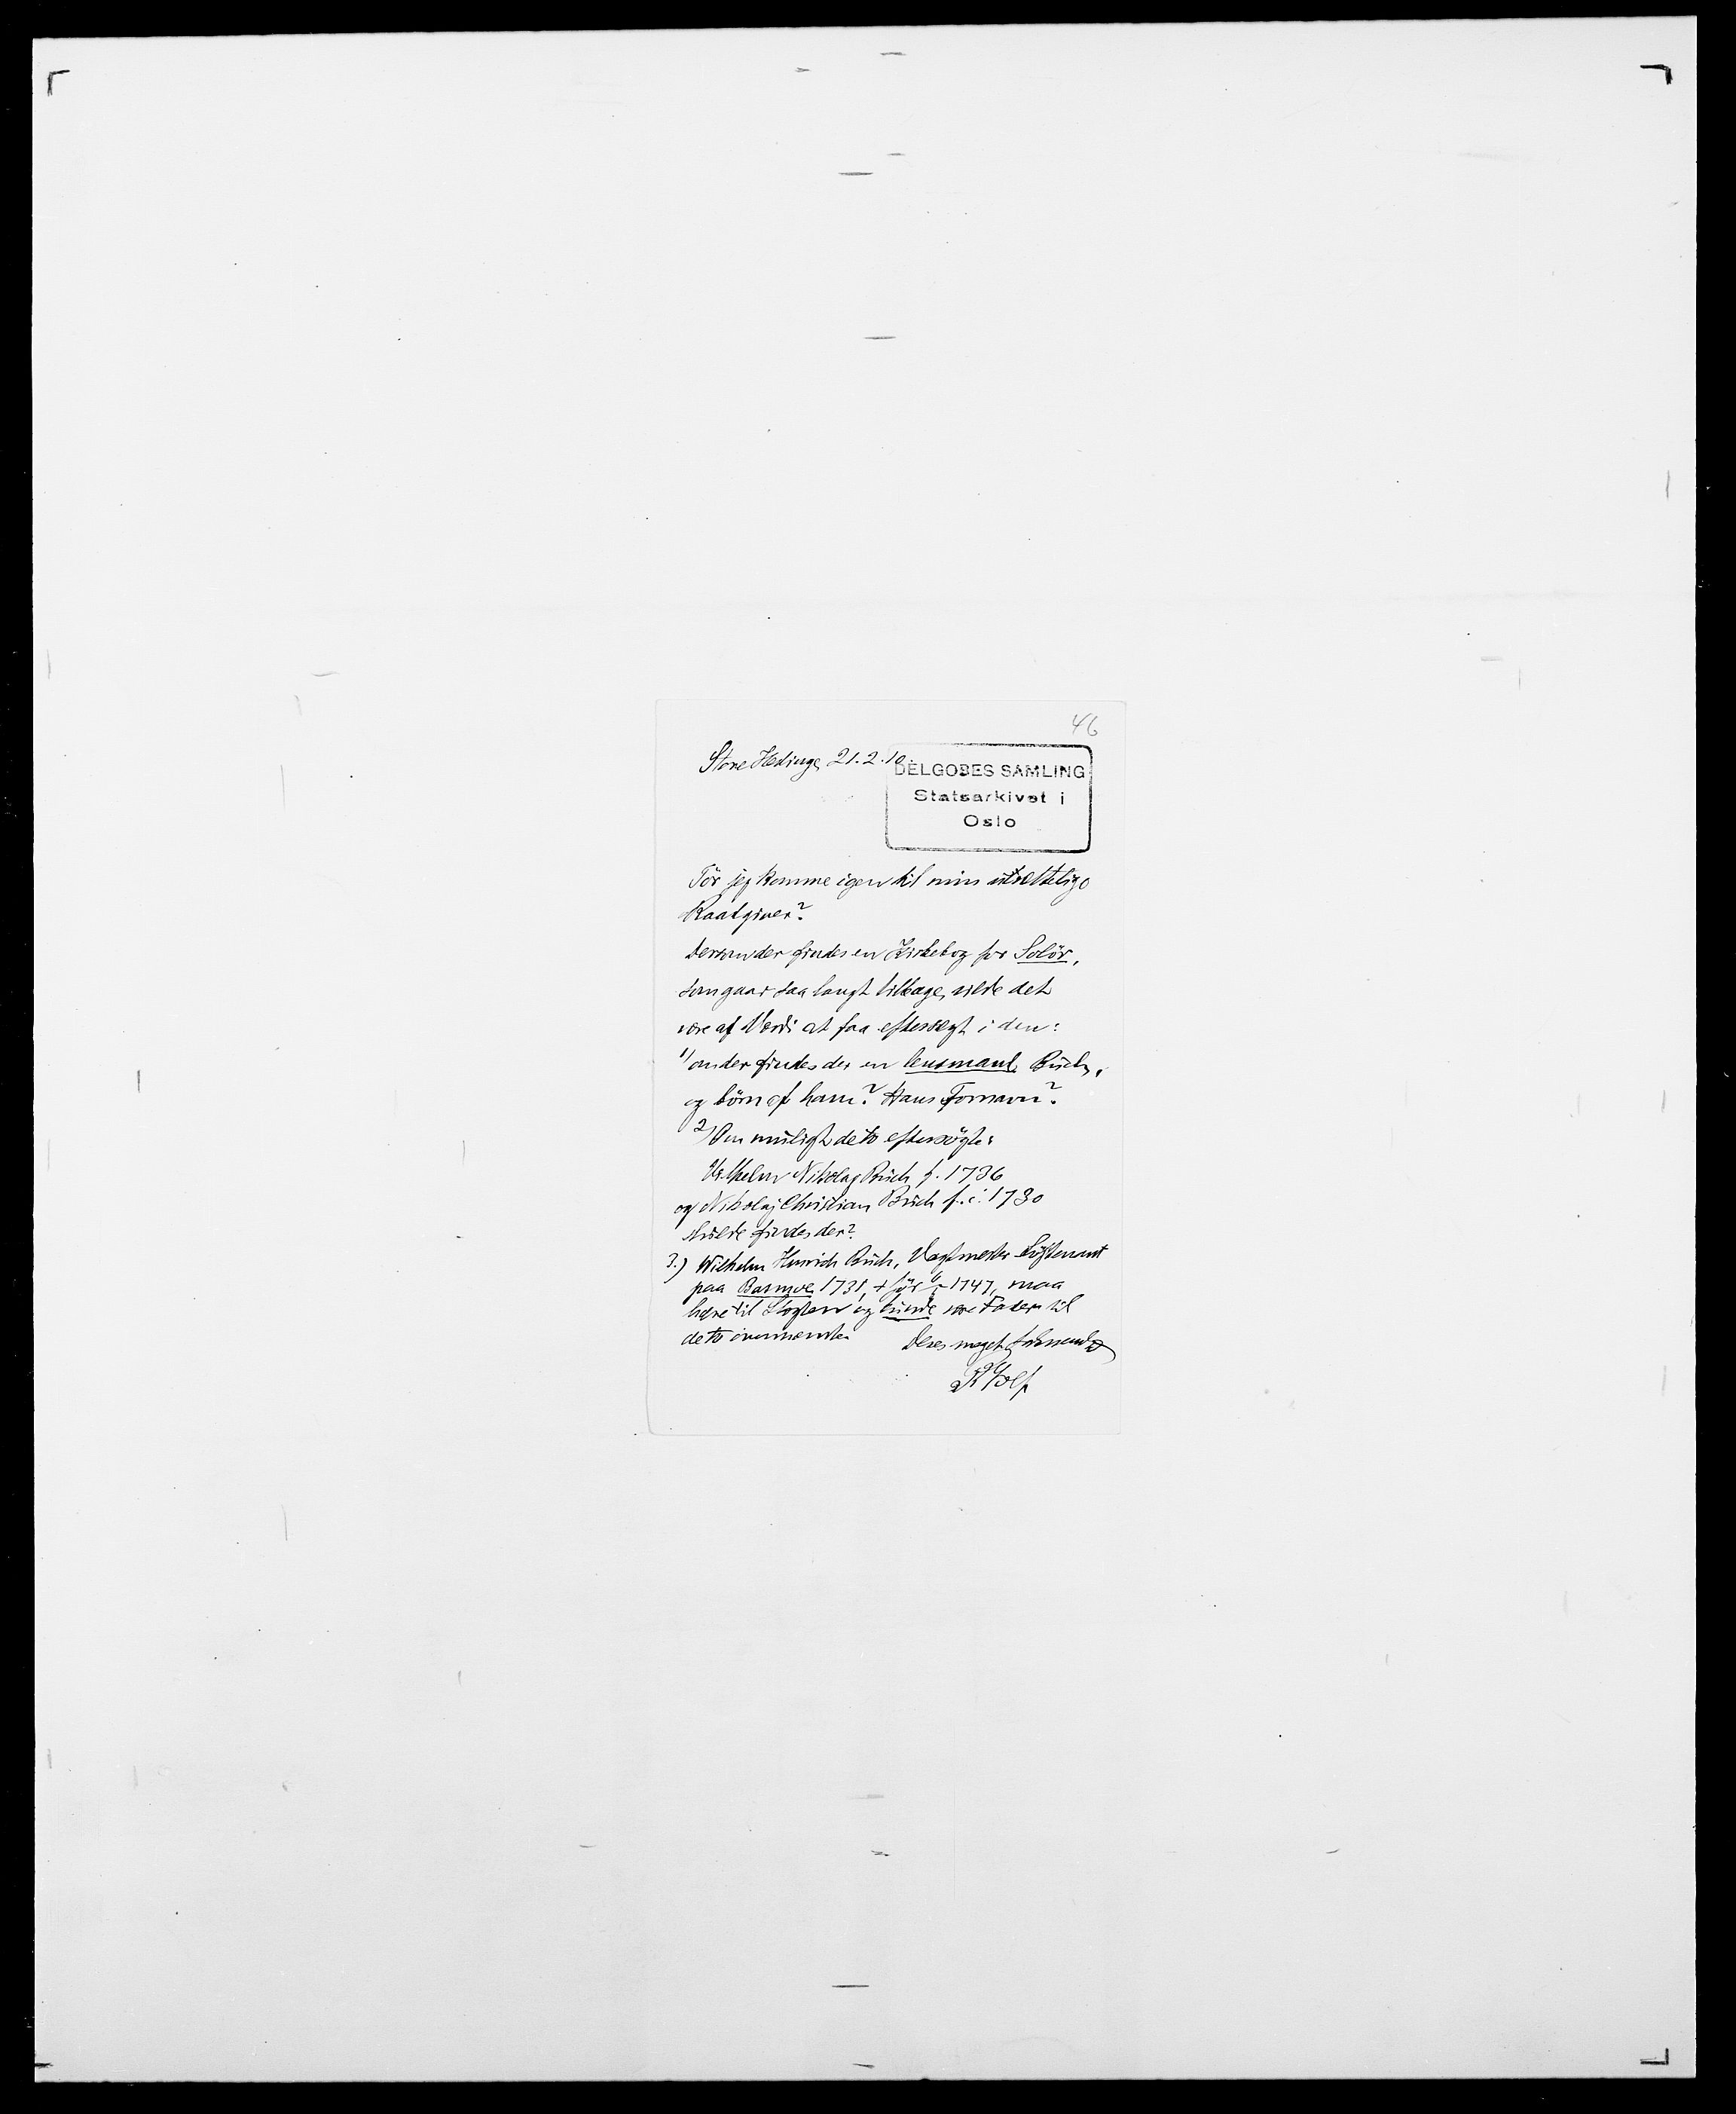 46
Store Hedinge, 21.2.10.
DELGOBES SAMLING
Statsarkivet i
Oslo
Tör jeg komme igen til min utrættelige
Raadgiver?
Dersom der findes en Kirkebog for Solör,
som gaar saa langt tilbage, vilde det
være af Værdi at faa eftersøgt i den:
1) om der findes der en lensmand Büch,
og börn af ham? Hans Fornavn?
2) Om muligt de to eftersögte:
Vilhelm Nikolaj Büch f. 1736
og Nikolaj Christian Büch f. c. 1730
skulde findes der?
3.) Wilhelm Hinrich Büch, Vagtmester Löjtenant
paa Basmoe 1731, + för 1747, maa
høre til Slægten og kunde være Fader til
de to ovennævnte.
Deres meget forbundne